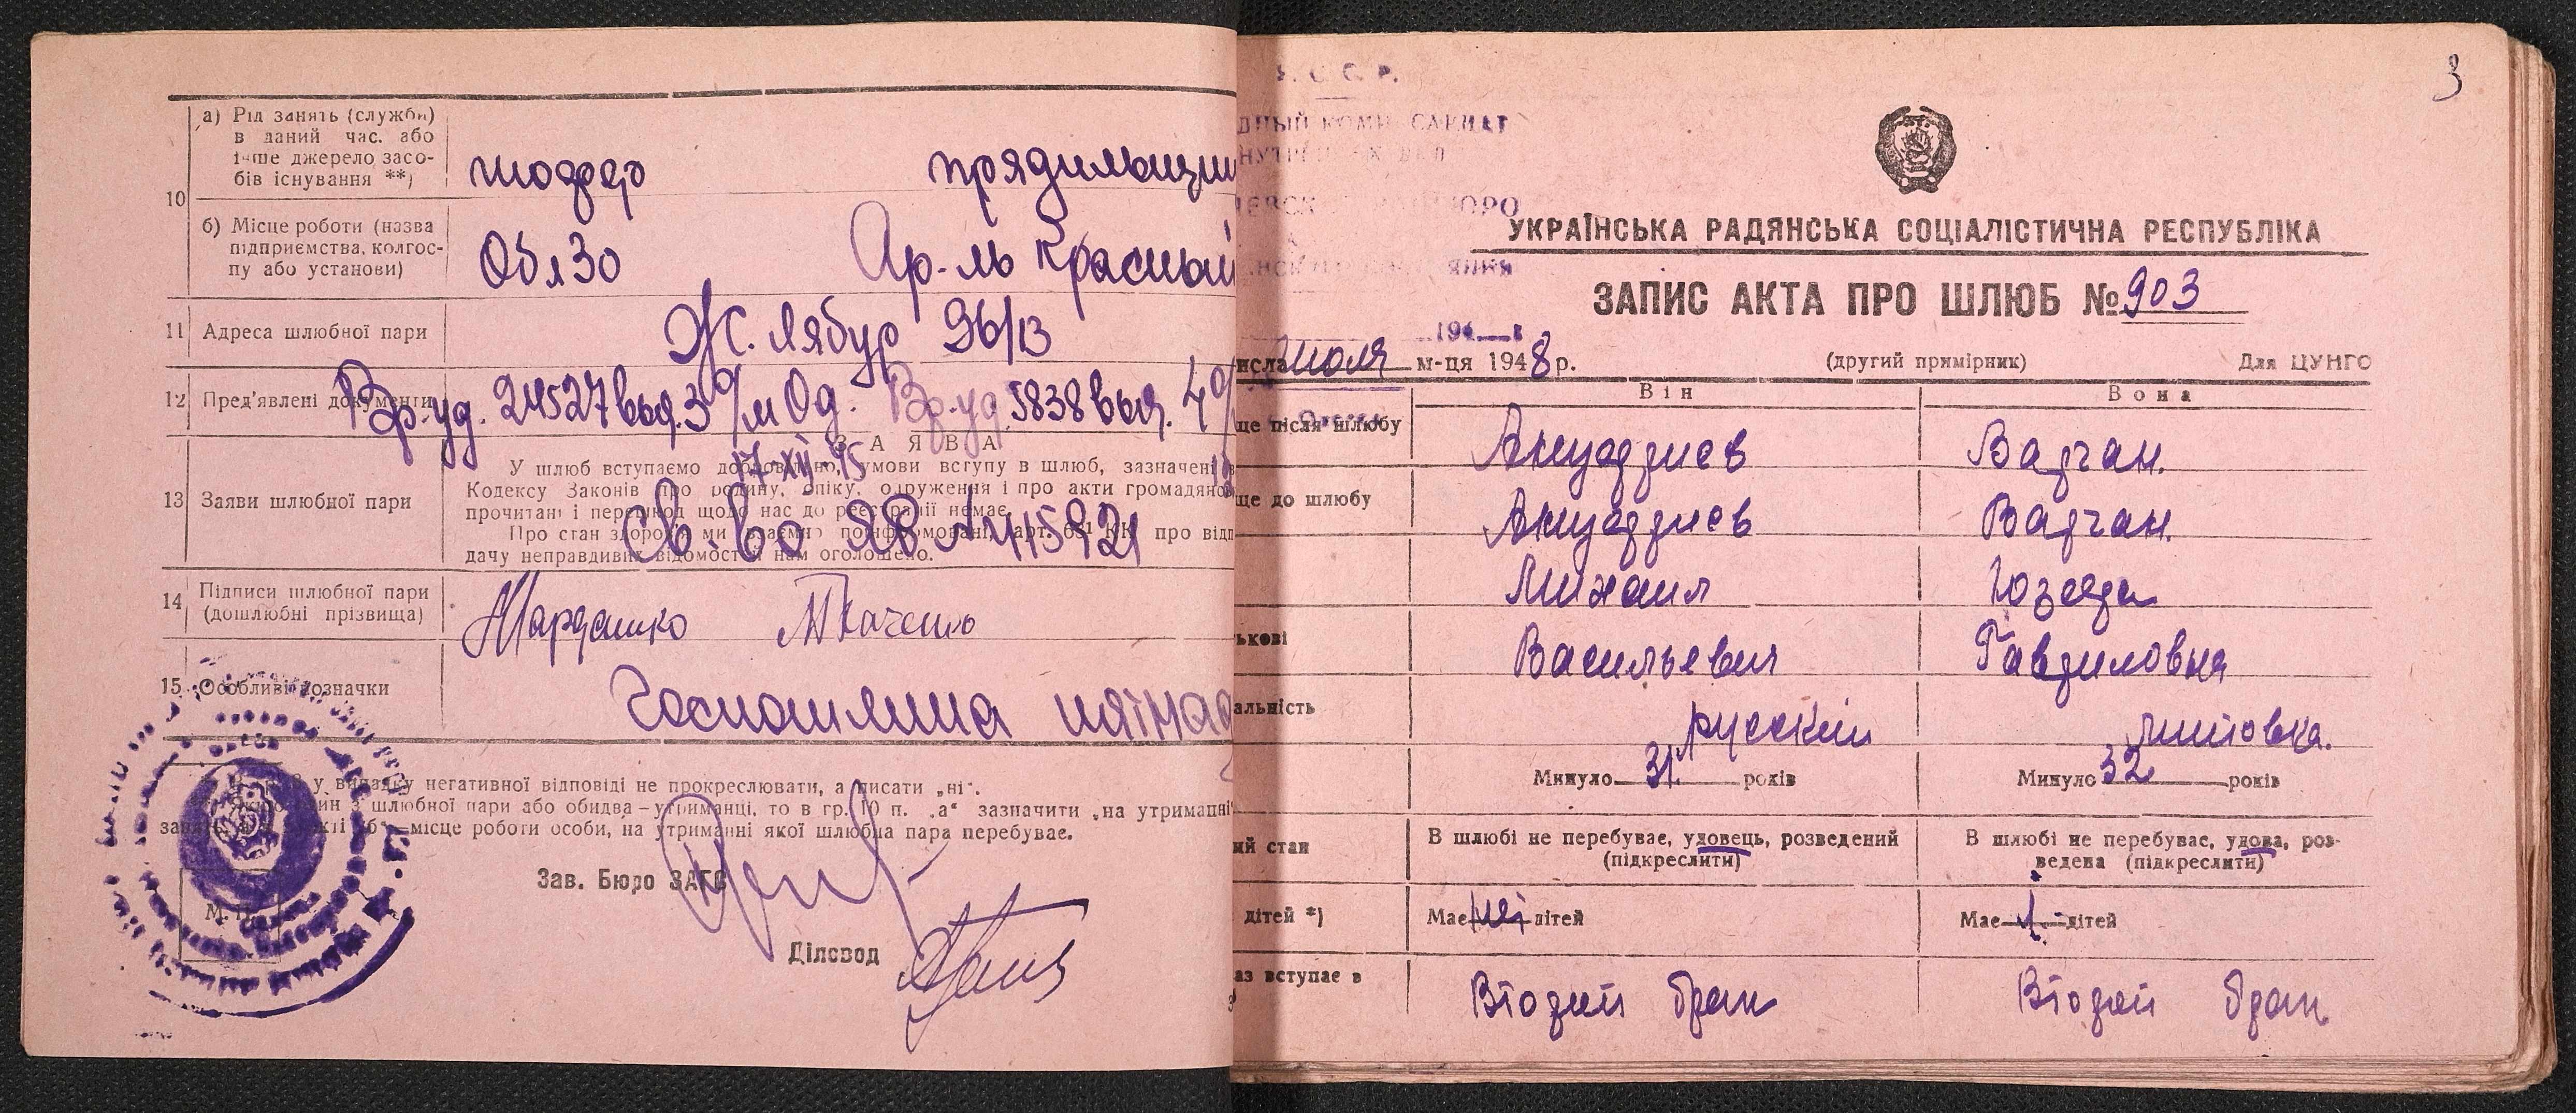 а) Рід занять (служби)
в даний час. або
інше джерело засо-
бів існування **)
шофер
прядильщи
10
б) Місце роботи (назва
підприємства, колгос-
пу або установи)
Обл30
Ар-ль Красный
11 Адреса шлюбної пари
Ж. Лябур 36/13
12 Пред'явлені документи
Вр. уд. 24527 выд. 3 о/м Од. Вр. уд 5838 выд. 4 о/
17-XII-45
ЗАЯВА
13 Заяви шлюбної пари
У шлюб вступаємо добровільно, умови вступу в шлюб, зазначені в
Кодексу Законів про родину, опіку, одруження і про акти громадянс
прочитані і перешкод щодо нас до реєстрації немає.
Про стан здоров'я ми взаємно поінформовані, арт. про відп
дачу неправдивих відомостей нам оголошено.
Св-во ЯВ
14 Підписи шлюбної пари
(дошлюбні прізвища)
Ткаченко
15 Особливі позначки
Госпошлина
у випадку негативної відповіді не прокреслювати, а писати „ні".
з шлюбної пари або обидва – утриманці, то в гр. 10 п. „а" зазначити „на утриманні
місце роботи особи, на утриманні якої шлюбна пара перебуває.
Зав. Бюро ЗАГС
М. П.
Діловод
3
У. С. С. Р.
ДНЫЙ КОМИССАРИАТ
ВНУТРЕННИХ ДЕЛ
УКРАЇНСЬКА РАДЯНСЬКА СОЦІАЛІСТИЧНА РЕСПУБЛІКА
ЗАПИС АКТА ПРО ШЛЮБ № 903
194 г
исла июля м-ця 1948 р.
(другий примірник)
Для ЦУНГО
Він
Вона
ще після шлюбу
Вадчан.
ще до шлюбу
Вадчан.
Михаил
Юзефа
ькові
Васильевич
Гавриловна
альність
русский
литовка.
Минуло 31 років
Минуло 32 років
ий стан
В шлюбі не перебуває, удовець, розведений
(підкреслити)
В шлюбі не перебуває, удова, роз-
ведена (підкреслити)
дітей *)
Має нет дітей
Має 1 дітей
аз вступає в
Второй брак
Второй брак